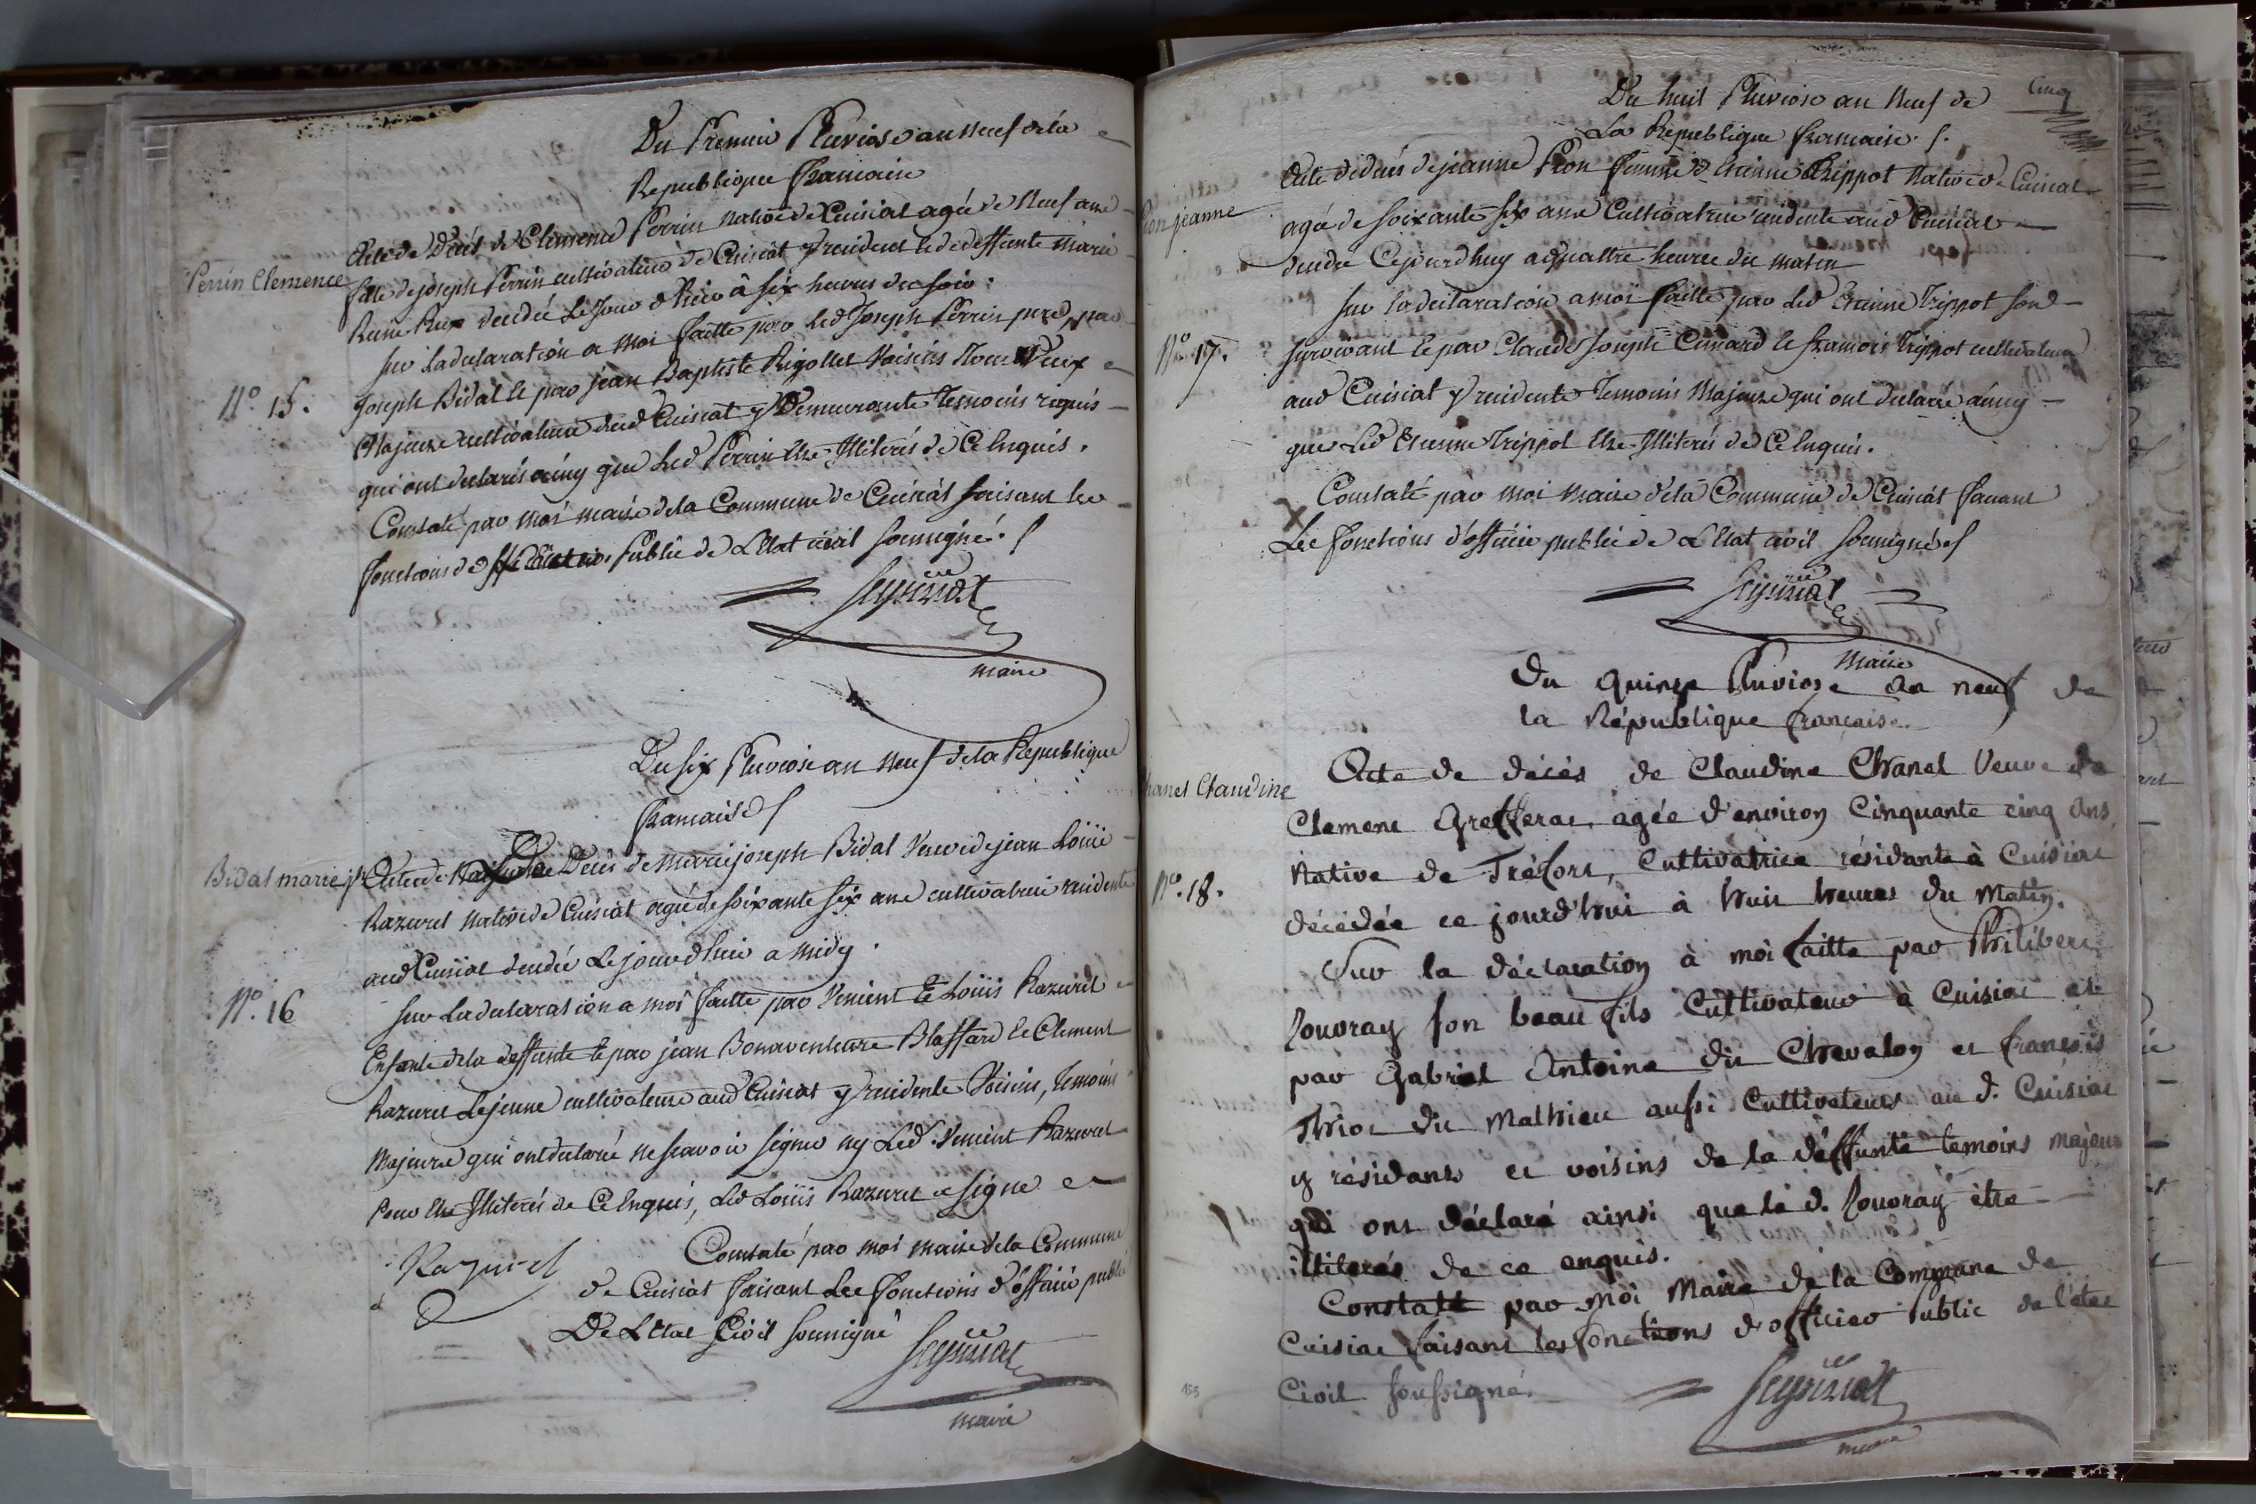 Du Premier Pluviose an neuf de la
Republique francaise
Perrin Clemence
Acte de Décés de Clemence Perrin native de Cuisiat agée de Neuf ans
fille de joseph Perrin cultivateur de Cuisiat y résident et de deffunte Marie
décédée Le Jour d'hier à six heures du soir
N.º 15.
sur la declaration a moi faitte par led Joseph Perrin pere, par
joseph Bidal et par jean Baptiste Rigollet voisins tous deux
Majeurs cultivateurs dud Cuisiat y Demeurants temoins requis
qui ont declarés ainsy que Led Perrin Etre Illiterés de Ce Enquis.
Constaté par moi maire de la Commune de Cuisiat faisant les
fonctions de Public de L'Etat civil soussigné.
maire
Du six Pluviose an neuf de la Republique
francaise
Bidal marie jph
Acte de Decés de Marie joseph Bidal Veuve de jean Louis
Razuret native de Cuisiat agée de soixante six ans cultivatrice residente
aud Cuisiat décédée Le jourd'hui a midy.
N.º 16
sur La declaration a moi faitte par Vincent Et Louis Razuret
Enfants de la deffunte Et par jean Bonaventure Blaffard et Clement
Razuret Lejeune cultivateurs aud Cuisiat y résidents Voisins, temoins
Majeurs qui ont declaré ne scavoir signer ny Led. Vincent Razuret
pour Etre Illiterés de Ce Enquis, Led Louis Razuret a signe
Constaté par moi maire de la Commune
de Cuisiat faisant Les fonctions d'officier public
De L'Etat Civil soussigné
maire
Cinq
Du huit Pluviose an Neuf de
La Republique francaise.
Acte de décés de jeanne Pion femme d'Etienne Trippot Native de Cuisiat
Pion jeanne
agée de soixante six ans Cultivatrice residente aud Cuisiat
décédée Cejourdhuy a quattre heures du matin
sur la declaration a moi faitte par Led Etienne Trippot son
N.º 17.
survivant et par Claude Joseph et francois Trippot cultivateurs
aud Cuisiat y residents temoins Majeurs qui ont declaré ainsy
que Led Etienne Trippot Etre Illiterés de Ce Enquis.
Constaté par moi maire de la Commune de Cuisiat faisant
Les fonctions d'officier public de L'Etat civil soussigné
maire
Du quinze Pluviose an neuf de
la République française.
Chanel Claudine
Acte de décès de Claudine Chanel Veuve de
Clement Grefferat, agée d'environ Cinquante cinq ans,
Native de Tréfort, Cultivatrice résidante à Cuisiat
N.º 18.
décédée ce jourd'hui à huit heures du Matin.
Sur la déclaration à moi faitte par Philibert
Jouvray son beau fils Cultivateur à Cuisiat et
par Gabriel Antoine dit Chevalon et françois
Thiot dit Mathieu aussi Cultivateurs au d. Cuisiat
y résidants et voisins de la déffunte temoins majeurs
qui ont déclaré ainsi que le d. Jouvray être
illiterés de ce enquis.
Constaté par moi Maire de la Commune de
Cuisiat faisant les fonctions d'officier Public de l'etat
Civil soussigné.
maire